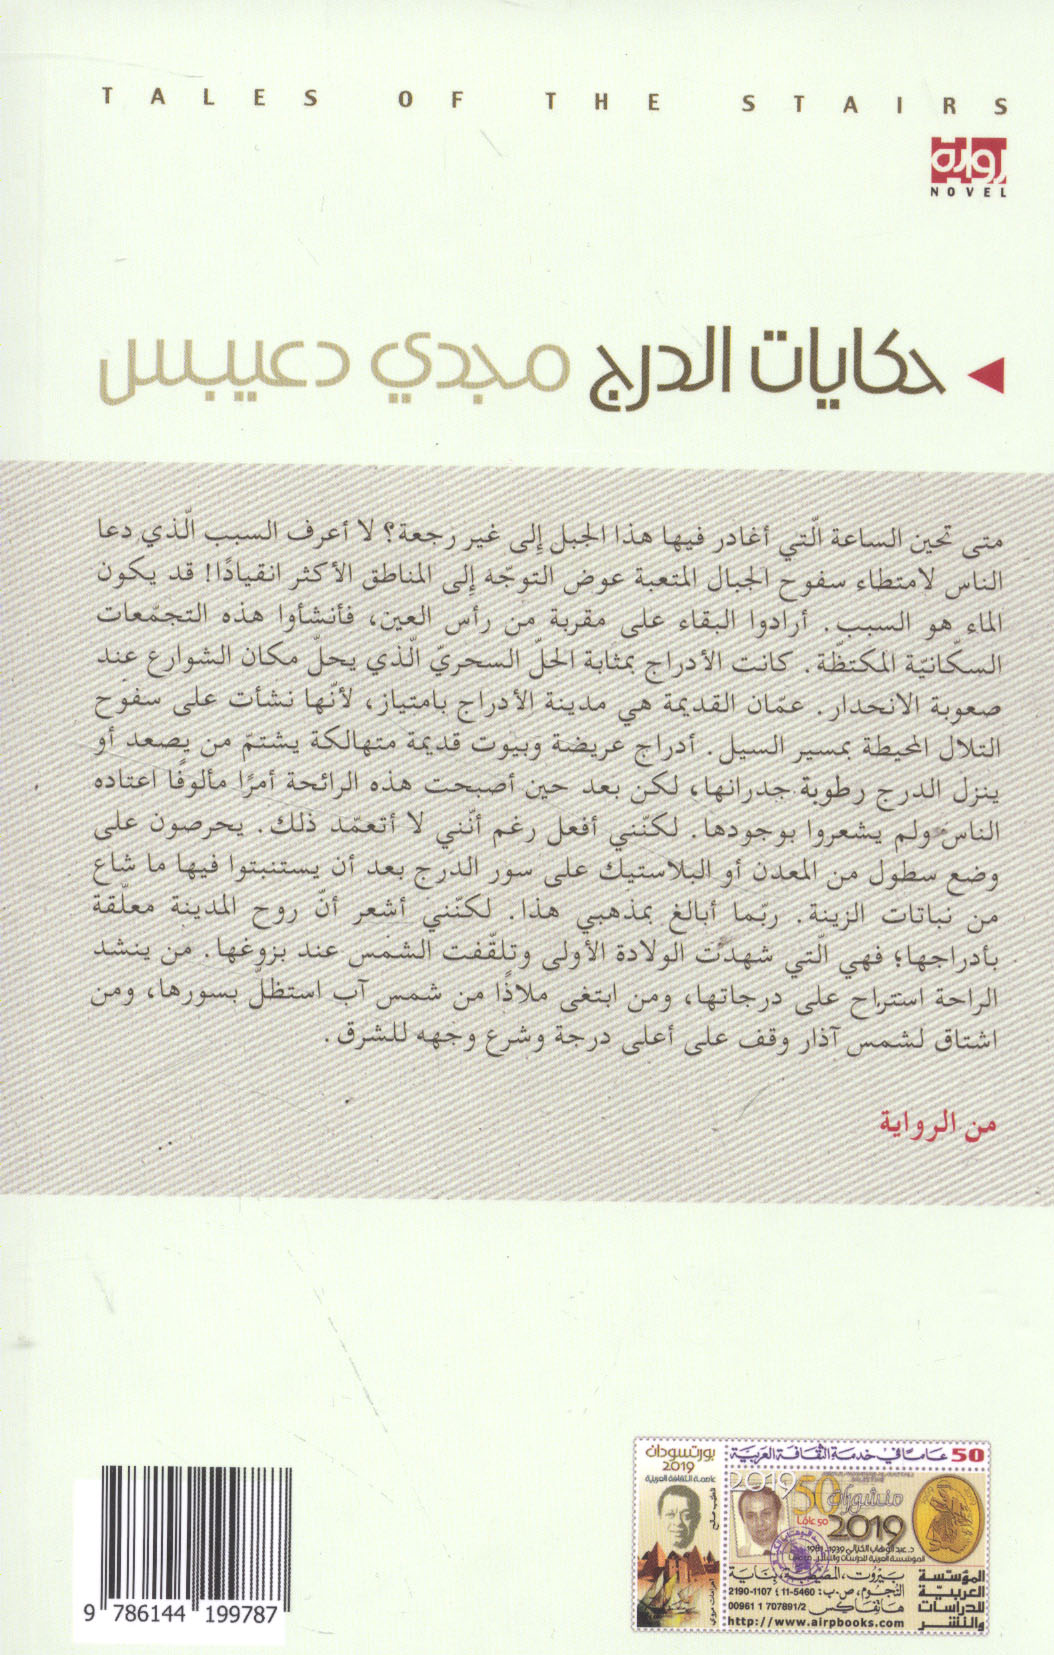 TALES OF THE STAIRS
رواية
NOVEL
حكايات الدرج مجدي دعيبس
متى تحين الساعة الّتي أغادر فيها هذا الجبل إلى غير رجعة؟ لا أعرف السبب الّذي دعا
الناس لامتطاء سفوح الجبال المتعبة عوض التوجّه إلى المناطق الأكثر انقيادًا! قد يكون
الماء هو السبب. أرادوا البقاء على مقربة من رأس العين، فأنشأوا هذه التجمّعات
السكّانيّة المكتظّة. كانت الأدراج بمثابة الحلّ السحريّ الّذي يحلّ مكان الشوارع عند
صعوبة الانحدار. عمّان القديمة هي مدينة الأدراج بامتياز، لأنّها نشأت على سفوح
التلال المحيطة بمسير السيل. أدراج عريضة وبيوت قديمة متهالكة يشتمّ من يصعد أو
ينزل الدرج رطوبة جدرانها، لكن بعد حين أصبحت هذه الرائحة أمرًا مألوفًا اعتاده
الناس ولم يشعروا بوجودها. لكنّني أفعل رغم أنّني لا أتعمّد ذلك. يحرصون على
وضع سطول من المعدن أو البلاستيك على سور الدرج بعد أن يستنبتوا فيها ما شاع
من نباتات الزينة. ربّما أبالغ بمذهبي هذا. لكنّني أشعر أنّ روح المدينة معلّقة
بأدراجها؛ فهي الّتي شهدت الولادة الأولى وتلقّفت الشمس عند بزوغها. من ينشد
الراحة استراح على درجاتها، ومن ابتغى ملاذًا من شمس آب استظلّ بسورها، ومن
اشتاق لشمس آذار وقف على أعلى درجة وشرع وجهه للشرق.
من الرواية
50 عاما في خدمة الثقافة العربية
بورتسودان
2019
عاصمة الثقافة العربية
2019
50
منشورات
50 عاما
2019
د. عبد الوهاب الكيالي 1939-1981
المؤسسة العربية للدراسات والنشر
المؤسسة
العربية
للدراسات
والنشر
بيروت، المصيطبة، بناية
النجوم، ص.ب: 5460-11 ؛ 1107-2190
هاتفاكس 00961 1 707891/2
http://www.airpbooks.com
9 786144 199787